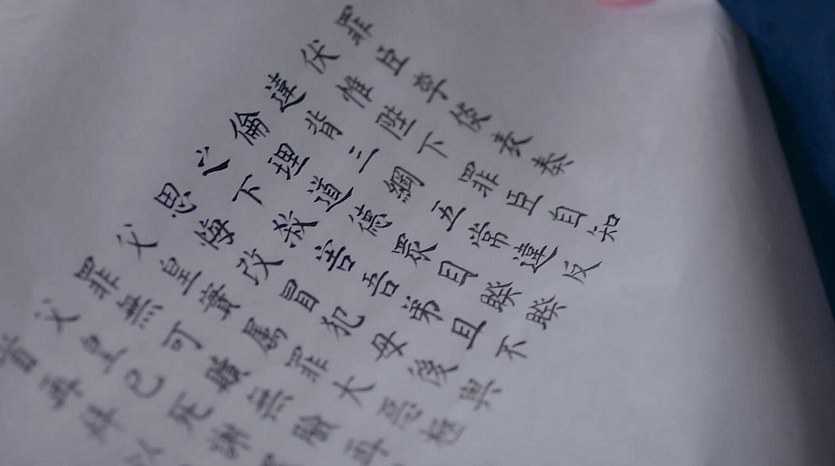 罪臣卒俊表奏
伏惟陛下 罪臣自知
違背三綱五常違反
倫理道德眾目睽睽
之下殺害吾弟且不
思悔改冒犯母後與
父皇實屬罪大惡極
罪無可贖無臉再
父皇已死謝
首再拜以